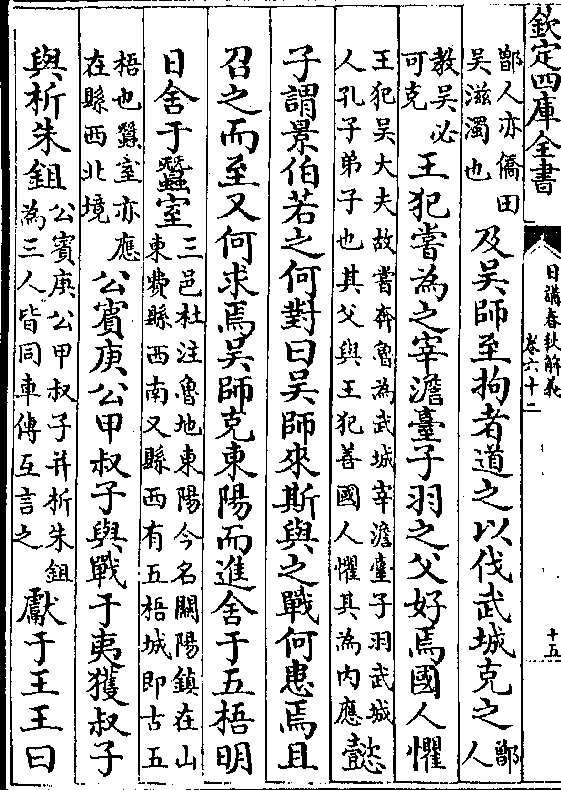 欽定四庫全書
日講春秋解義
卷六十二
十五
鄫人亦僑田
吳滋濁也
及吳師至拘者道之以伐武城克之
鄫
人
教吳必
可克
王犯嘗為之宰澹臺子羽之父好焉國人懼
王犯吳大夫故嘗奔魯為武城宰澹臺子羽武城
人孔子弟子也其父與王犯善國人懼其為内應
懿
子謂景伯若之何對曰吳師來斯與之戰何患焉且
召之而至又何求焉吳師克東陽而進舍于五梧明
日舍于蠶室
三邑杜注魯地東陽今名關陽鎮在山
東費縣西南又縣西有五梧城即古五
梧也蠶室亦應
在縣西北境
公賓庚公甲叔子與戰于夷獲叔子
與析朱鉏
公賓庚公甲叔子并析朱鉏
為三人皆同車傳互言之
獻于王王曰